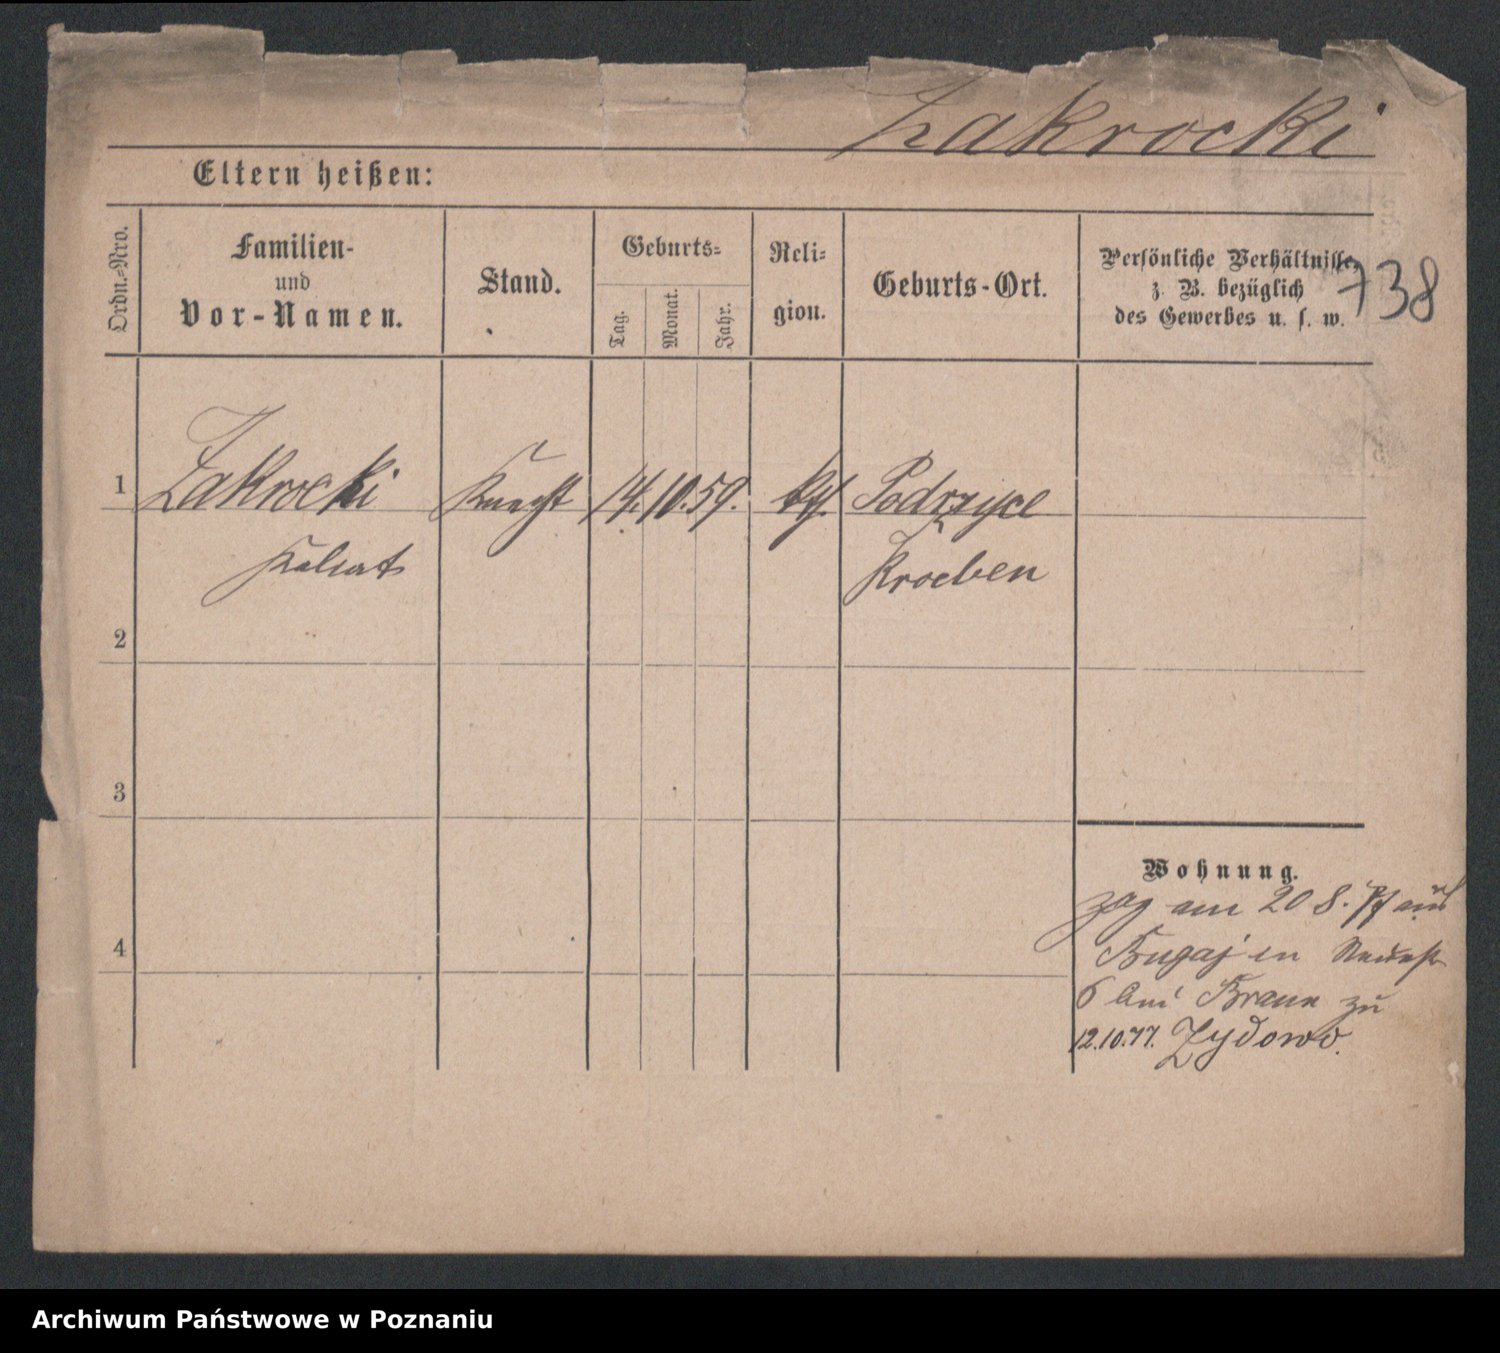 Zakrocki
Eltern heißen:
Ordn.=Nro.
Familien-
und
Vor-Namen.
Stand.
Geburts=
Tag.
Monat.
Jahr.
Reli=
gion.
Geburts-Ort.
Persönliche Verhältnisse,
z. B. bezüglich
des Gewerbes u. s. w.
738
1 Zakrocki Knecht 14. 10. 59. kth. Podrzyce
Kroeben
2
3
4
Wohnung.
zog am 20 8. 77 aus
Bugaj in
6 bei Braun zu
12.10.77. Zydowo.
Archiwum Państwowe w Poznaniu